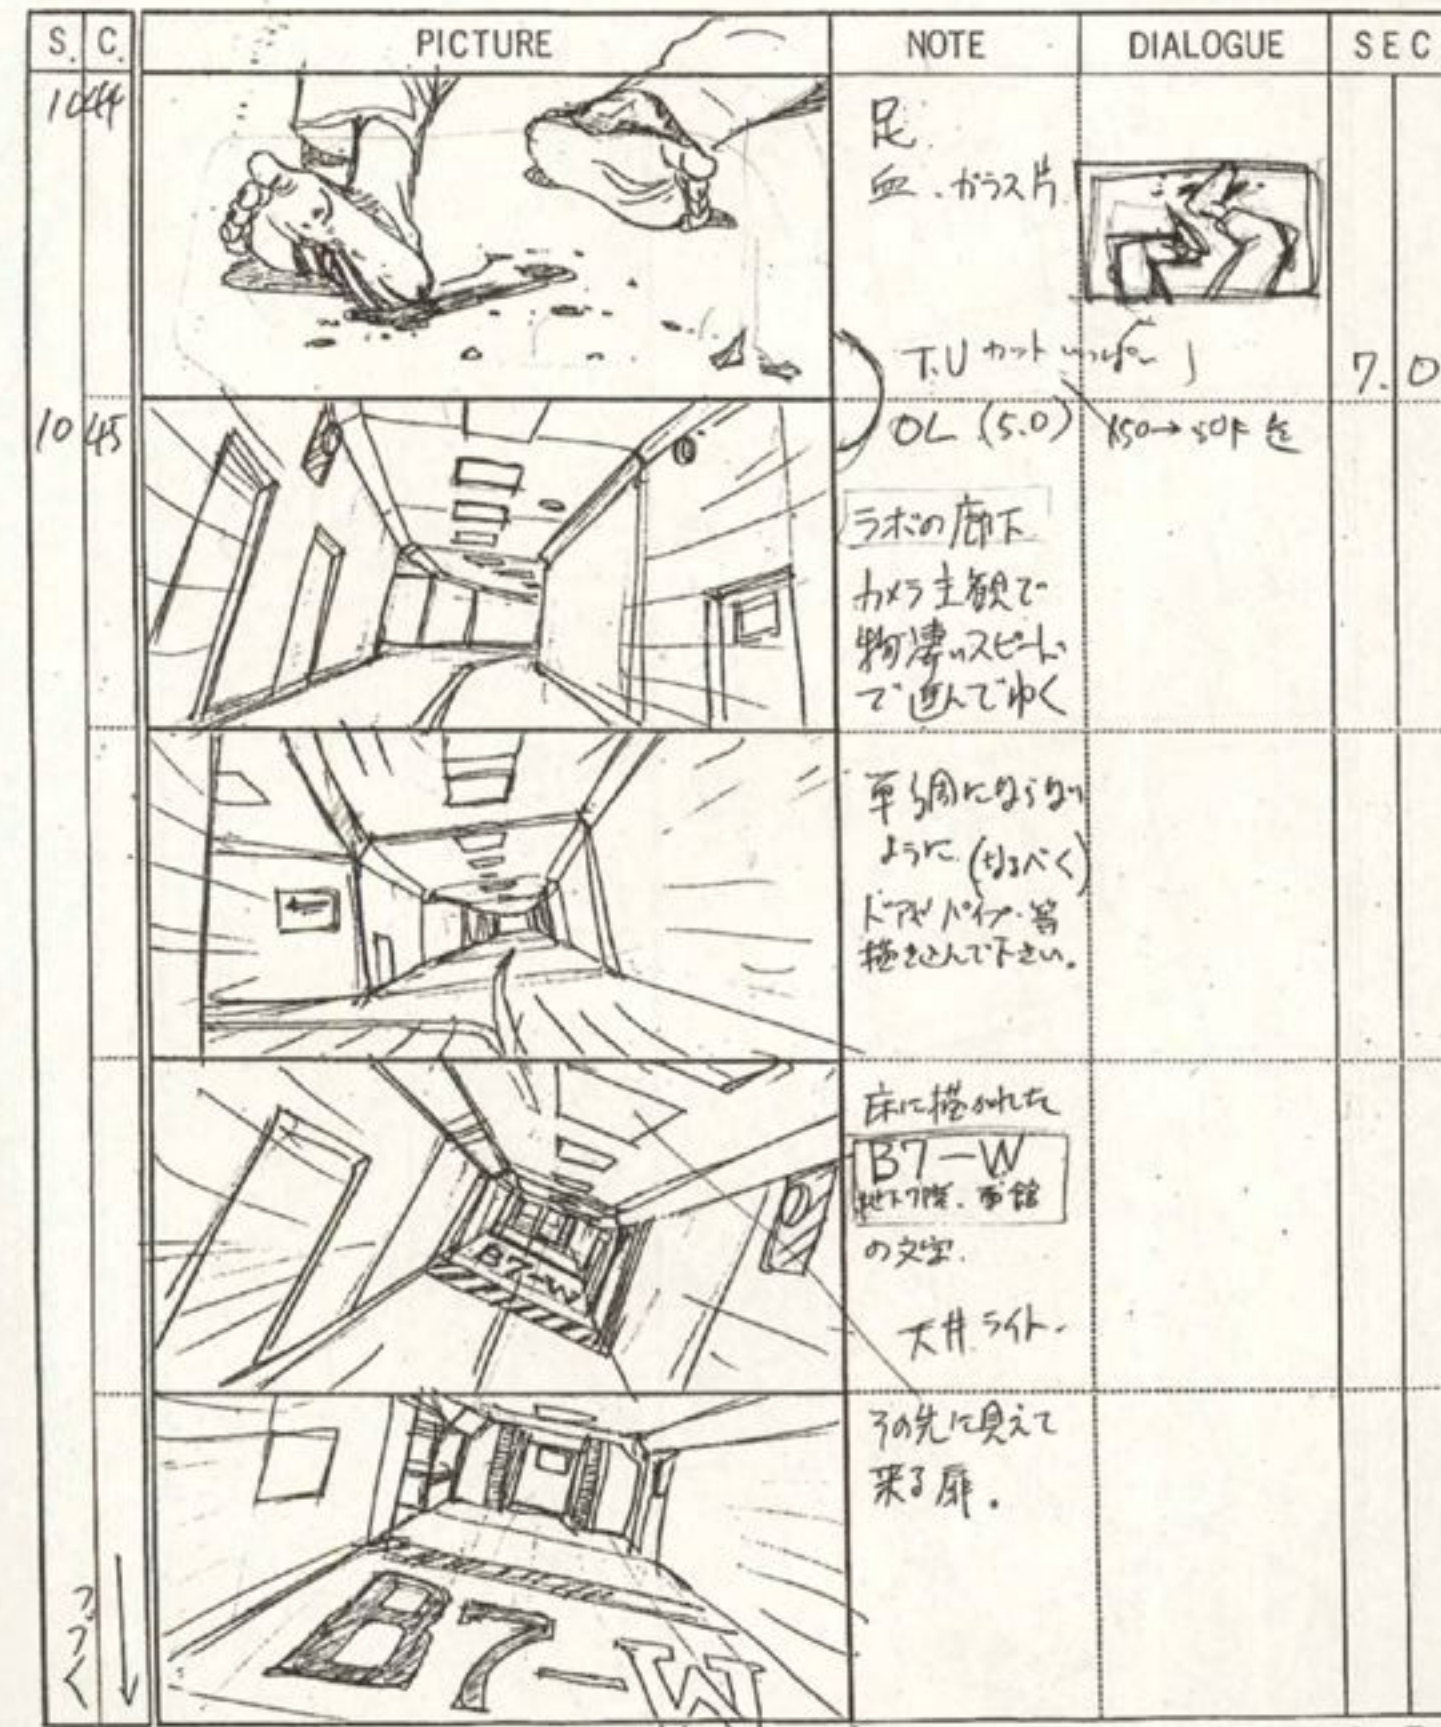 S. C. PICTURE NOTE DIALOGUE SEC
10 44
足.
血.ガラス片
T.U カット いっぱい
7.0
10 45
OL (5.0)
150→50F
ラボの廊下
カメラ主観で
物凄いスピード
で進んでゆく
単調にならない
ように.(なるべく)
ドアやパイプ.等
描き込んで下さい。
床に描かれた
B7-W
地下7階.西館
の文字.
天井.ライト.
B7-W
その先に見えて
来る扉。
B7-W
つづく